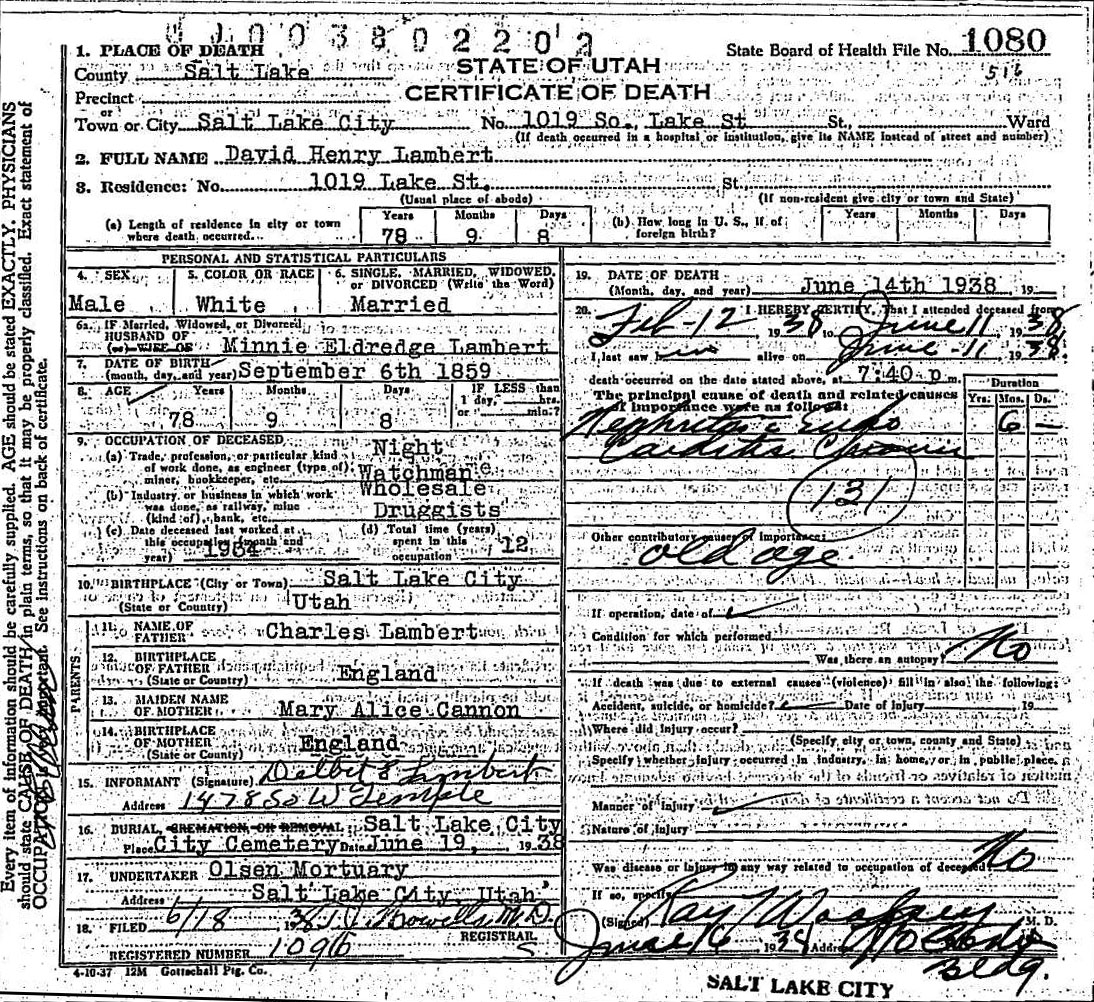 0 0 0 3 8 0 2 2 0 2
1. PLACE OF DEATH
State Board of Health File No. 1080
County Salt Lake
STATE OF UTAH
516
Precinct
CERTIFICATE OF DEATH
or
Town or City Salt Lake City No. 1019 So., Lake St St., Ward
(If death occurred in a hospital or institution, give its NAME instead of street and number)
2. FULL NAME David Henry Lambert
3. Residence: No. 1019 Lake St. St.
(Usual place of abode) (If non-resident give city or town and State)
(a) Length of residence in city or town where death occurred. Years 78 Months 9 Days 8
(b) How long in U. S., if of foreign birth? Years Months Days
PERSONAL AND STATISTICAL PARTICULARS
4. SEX Male
5. COLOR OR RACE White
6. SINGLE, MARRIED, WIDOWED, or DIVORCED (Write the Word) Married
6a. If Married, Widowed, or Divorced
HUSBAND OF
(or) WIFE OF Minnie Eldredge Lambert
7. DATE OF BIRTH
(month, day, and year) September 6th 1859
8. AGE Years 78 Months 9 Days 8 IF LESS than 1 day, hrs. or min.?
9. OCCUPATION OF DECEASED
(a) Trade, profession, or particular kind of work done, as engineer (type of) miner, bookkeeper, etc. Night Watchman
(b) Industry or business in which work was done, as railway, mine (kind of), bank, etc. Wholesale Druggists
(c) Date deceased last worked at this occupation (month and year) 1934
(d) Total time (years) spent in this occupation 12
10. BIRTHPLACE (City or Town) Salt Lake City
(State or Country) Utah
PARENTS
11. NAME OF FATHER Charles Lambert
12. BIRTHPLACE OF FATHER (State or Country) England
13. MAIDEN NAME OF MOTHER Mary Alice Cannon
14. BIRTHPLACE OF MOTHER (State or County) England
15. INFORMANT (Signature) Delbert E Lambert
Address 1478 So W Temple
16. BURIAL, CREMATION, OR REMOVAL Salt Lake City
Place City Cemetery Date June 19, 1938
17. UNDERTAKER Olsen Mortuary
Address Salt Lake City, Utah
18. FILED 6/18 1938 M.D.
REGISTRAR
REGISTERED NUMBER 1096
4-10-37 12M Gottschall Ptg. Co.
19. DATE OF DEATH
(Month, day, and year) June 14th 1938 19
20. I HEREBY CERTIFY, That I attended deceased from
Feb-12 1938 to June 11 1938
I last saw him alive on June-11 1938
death occurred on the date stated above, at 7:40 p m.
The principal cause of death and related causes of importance were as follows:
Duration
Yrs. Mos. Ds.
Nephritis c Endo 6 —
Carditis Chronic
131
Other contributory causes of importance:
old age
If operation, date of
Condition for which performed
Was there an autopsy? No
If death was due to external causes (violence) fill in also the following:
Accident, suicide, or homicide? Date of injury 19
Where did injury occur?
(Specify city or town, county and State)
Specify whether injury occurred in industry, in home, or in public place.
Manner of injury
Nature of injury
Was disease or injury in any way related to occupation of deceased No
If so, specify
(Signed) Ray Woolsey M. D.
June 16 1938 Address
Bldg.
SALT LAKE CITY
Every item of information should be carefully supplied. AGE should be stated EXACTLY. PHYSICIANS
should state CAUSE OF DEATH in plain terms, so that it may be properly classified. Exact statement of
OCCUPATION is very important. See instructions on back of certificate.